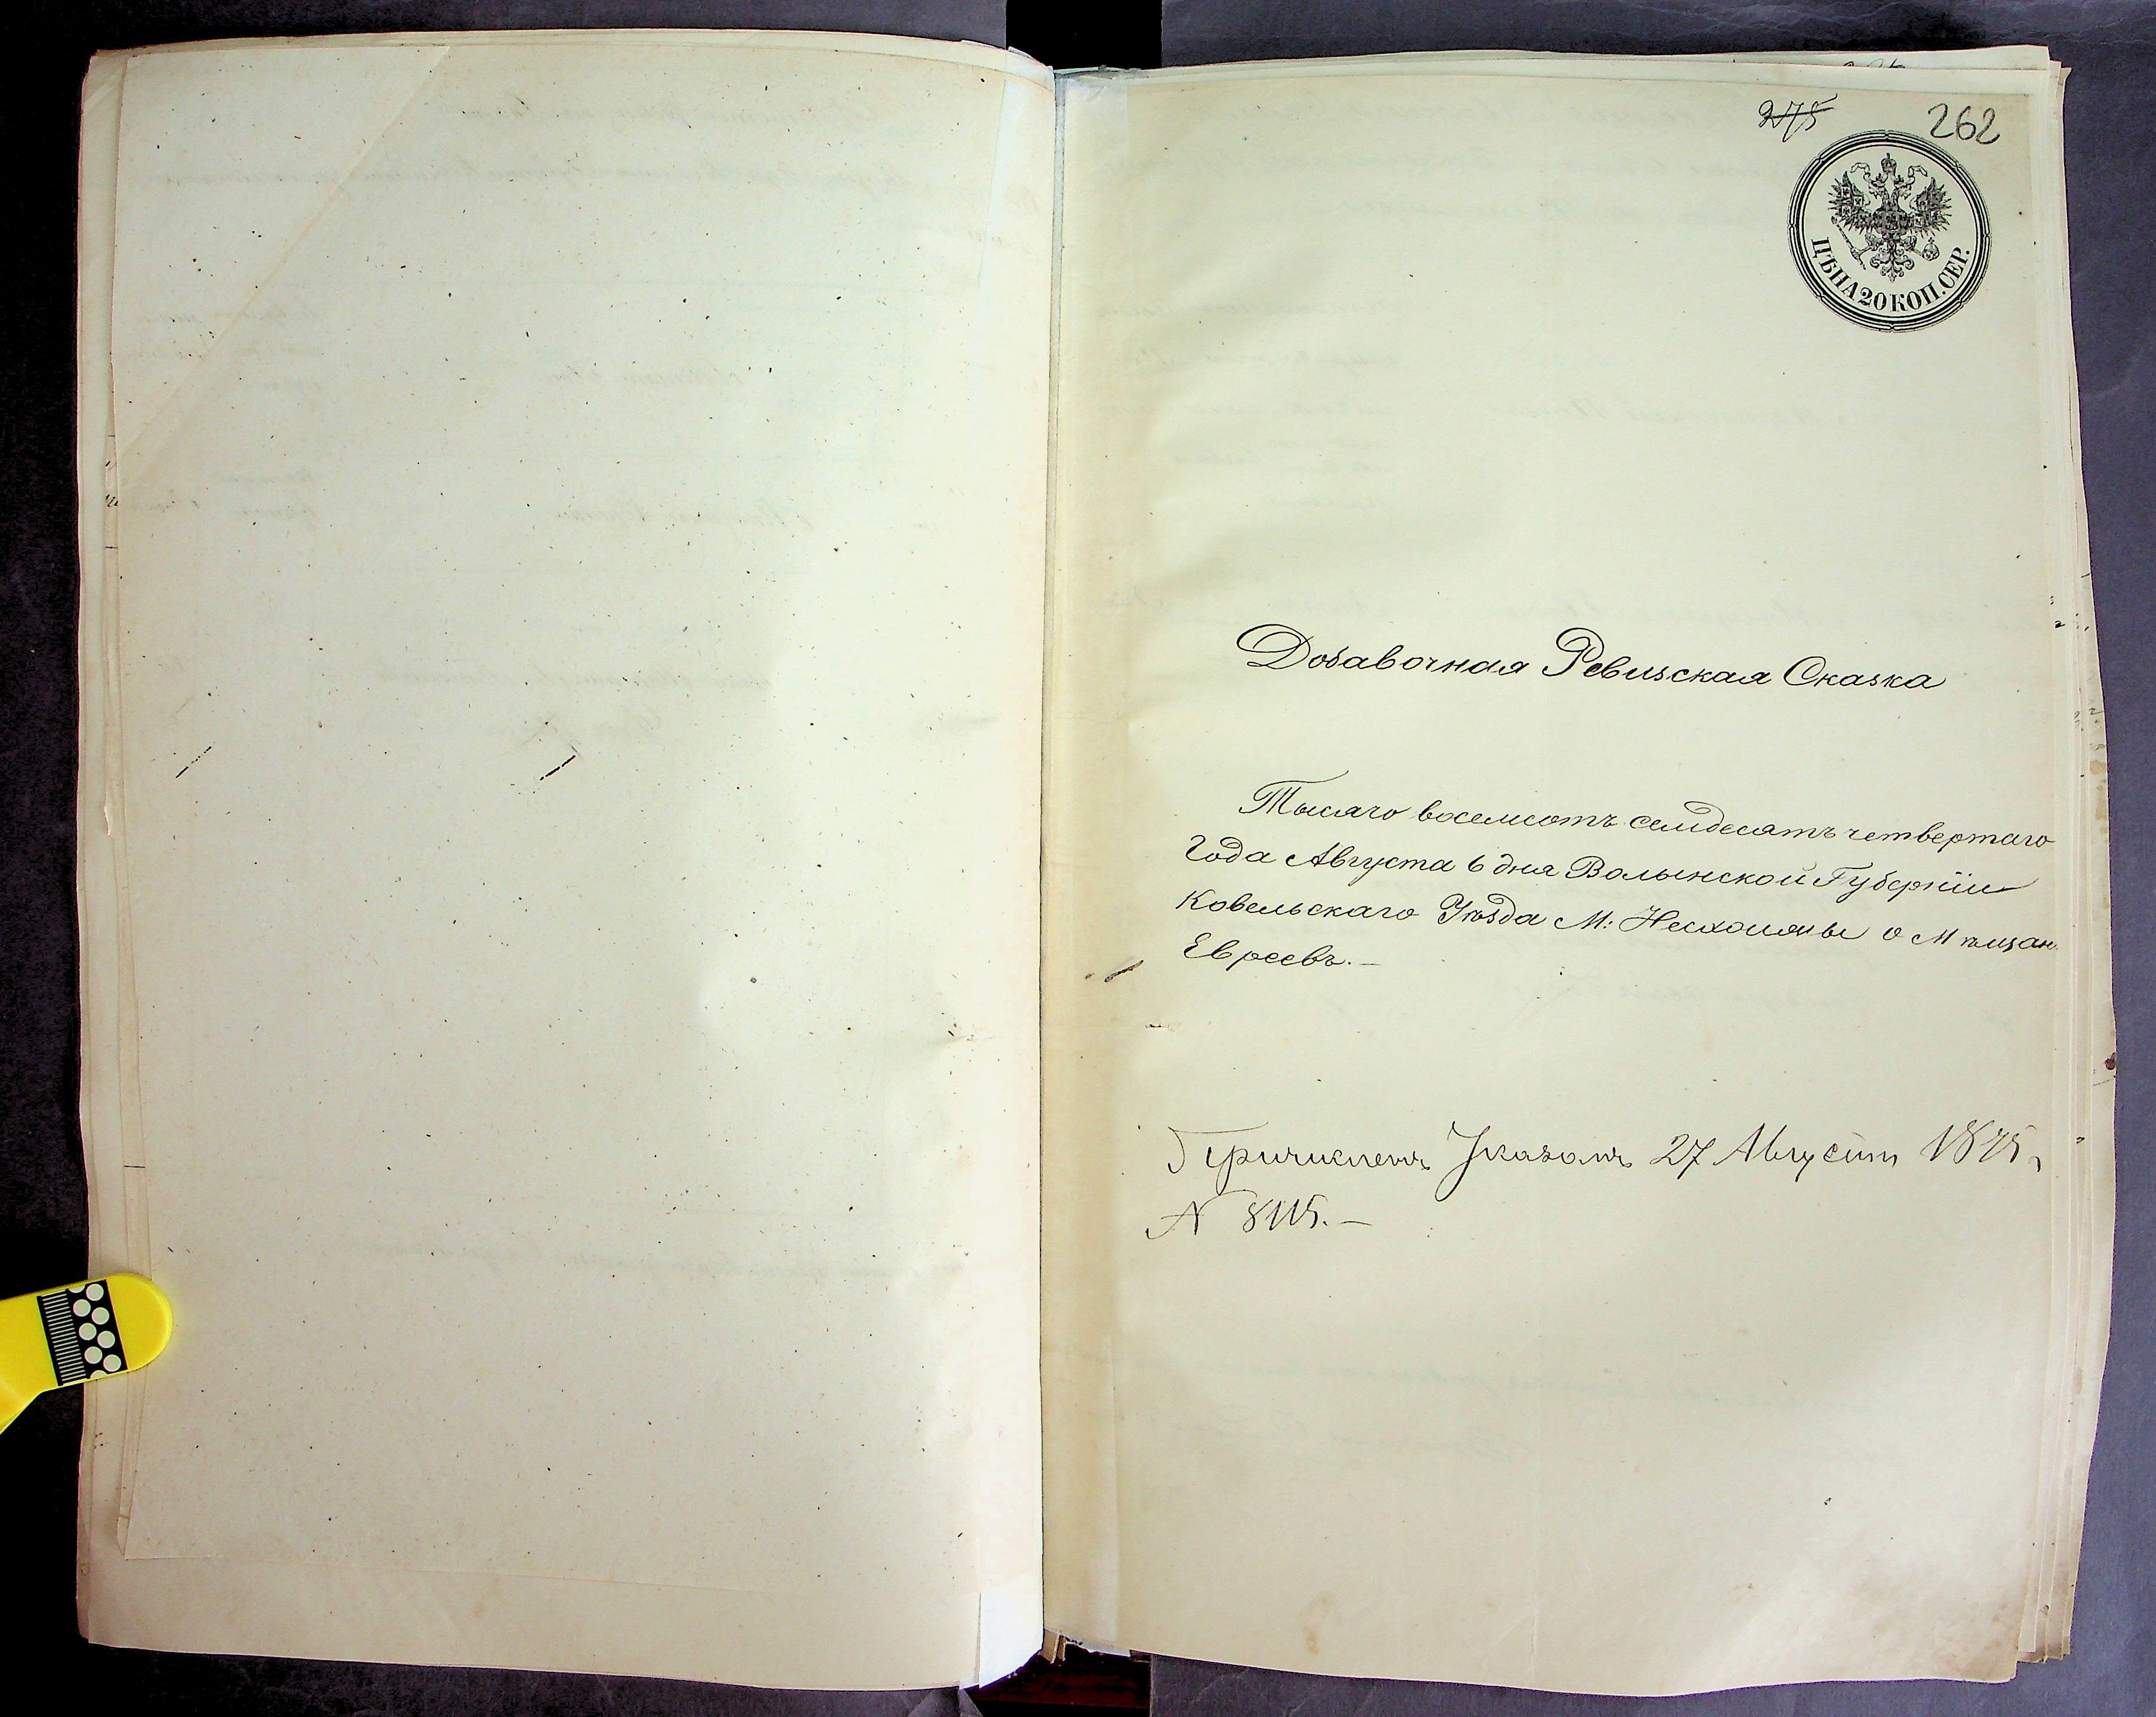 275 262
ЦѢНА 20 КОП. СЕР.
Добавочная Ревизская Сказка
Тысячо восемсотъ семдесятъ четвертаго
Года Августа 6 дня Волынской Губерніи
Ковельскаго Уѣзда М: Несхоижы о Мѣщан.
Евреевъ.—
Причисленъ Указомъ 27 Августа 1875 г
N 8115.—